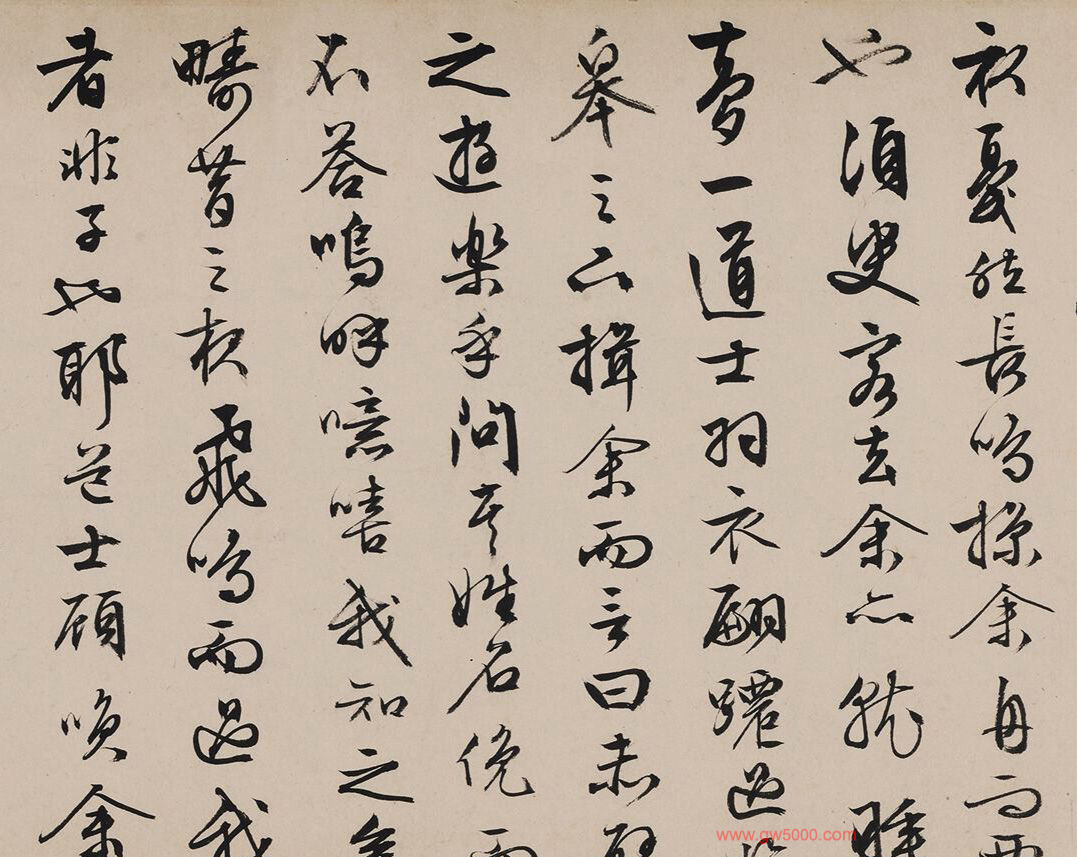 衣戛然長鳴掠余舟而西
也須臾客去余亦就睡
夢一道士羽衣翩躚過
皋之下揖余而言曰赤壁
之遊樂乎問其姓名俛而
不答嗚呼噫嘻我知之矣
疇昔之夜飛鳴而過我
者非子也耶道士顧咲余
www.gw5000.com